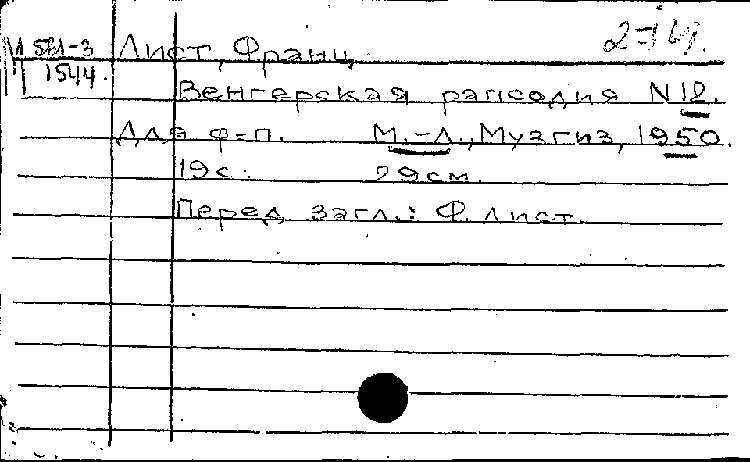 М 521-3 Лист, Франц
1544.
Венгерская рапсодия N 12.
Для ф-п. М.-Л., Музгиз, 1950.
19с. 29см.
Перед загл.: Ф. Лист.